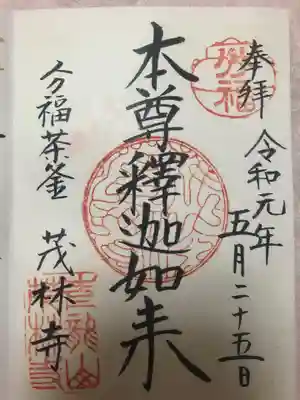 奉拝 令和元年
五月二十五日
本尊釋迦如来
分福茶釜 茂林寺